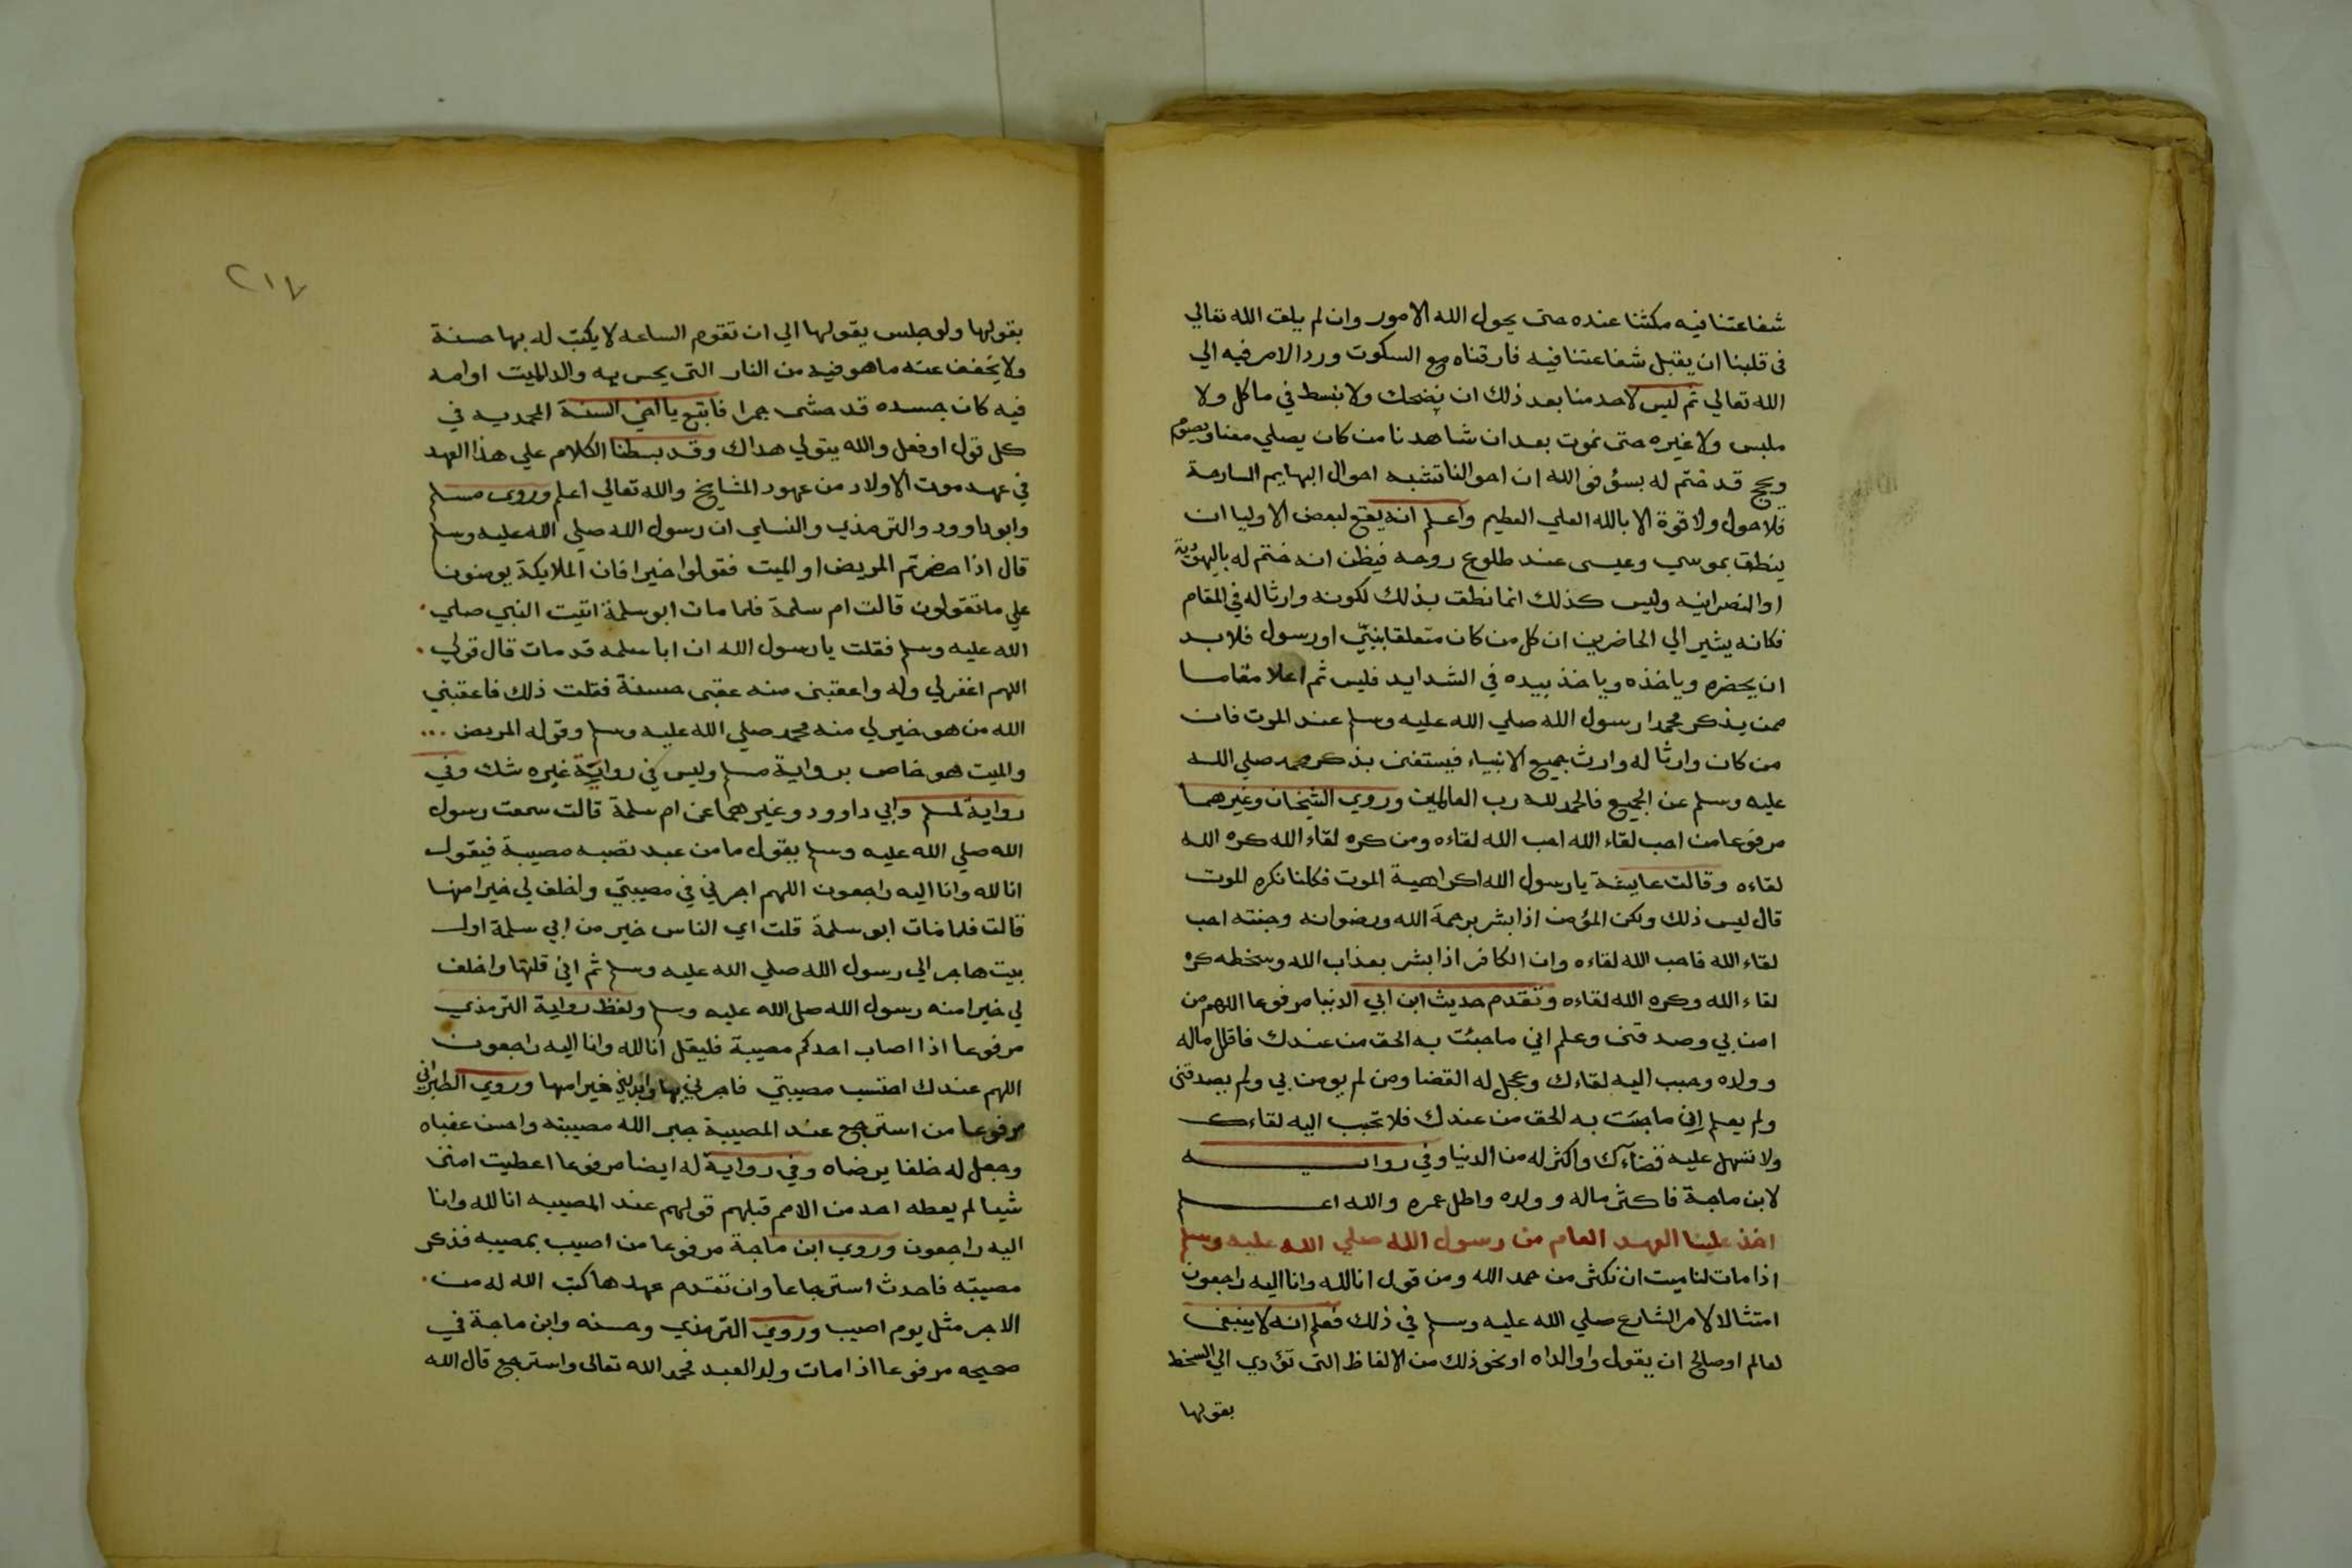 شفاعتنا فيه مكثنا عنده حتى يحول الله الامور وان لم يلق الله تعالي
في قلبنا ان يقبل شفاعتنا فيه فارقناه مع السكوت ورد الامر فيه الي
الله تعالي ثم ليس لاحد منا بعد ذلك ان يضحك ولا ينبسط في ماكل ولا
ملبس ولا غيره حتى نموت بعد ان شاهدنا من كان يصلي معنا ويصوم
ويحج قد ختم له بسؤ فوالله ان احوالنا تشبه احوال البهايم السارحة
فلا حول ولا قوة الا بالله العلي العظيم واعلم انه يقع لبعض الاوليا ان
ينطق بموسي وعيسى عند طلوع روحه فيظن انه ختم له باليهودية
او النصرانيه وليس كذلك انما نطق بذلك لكونه وارثا له في المقام
فكانه يشير الي الحاضرين ان كل من كان متعلقا بنبيّ او رسول فلابد
ان يحضره وياخذه وياخذ بيده في الشدايد فليس ثم اعلا مقاما
ممن يذكر محمدا رسول الله صلي الله عليه وسلم عند الموت فان
من كان وارثا له وارث جميع الانبياء فيستغنى بذكر محمد صلي الله
عليه وسلم عن الجميع فالحمد لله رب العالمين وروي الشيخان وغيرهما
مرفوعا من احب لقاء الله احب الله لقاءه ومن كره لقاء الله كره الله
لقاءه وقالت عايشة يا رسول الله اكراهية الموت فكلنا نكره الموت
قال ليس ذلك ولكن المؤمن اذا بشر برحمة الله ورضوانه وجنته احب
لقاء الله فاحب الله لقاءه وان الكافر اذا بشر بعذاب الله وسخطه كره
لقاء الله وكره الله لقاءه وتقدم حديث ابن ابي الدنيا مرفوعا اللهم من
امن بي وصدقنى وعلم اني ما جئت به الحق من عندك فاقلل ماله
وولده وحبب اليه لقاءك وعجل له القضا ومن لم يومن بي ولم يصدقنى
ولم يعلم اني ما جئت به الحق من عندك فلا تحبب اليه لقاءك
ولا تسهل عليه قضآءك واكثر له من الدنيا وفي روايه
لابن ماجة فاكثر ماله وولده واطل عمره والله اعلم
اخذ علينا العهد العام من رسول الله صلي الله عليه وسلم
اذا مات لنا ميت ان نكثر من حمد الله ومن قول انا لله وانا اليه راجعون
امتثالا لامر الشارع صلي الله عليه وسلم في ذلك فعلم انه لا ينبغى
لعالم او صالح ان يقول واوالداه او نحو ذلك من الالفاظ التى تؤدي الي السخط
بقولها
٢١٧
بقولها ولو جلس يقولها الي ان تقوم الساعه لا يكتب له بها حسنة
ولا يخفف عنه ما هو فيه من النار التى يحس به والد الميت او امه
فيه كان جسده قد حشى جمرا فاتبع يا اخي السنة المحمديه في
كل قول او فعل والله يتولي هداك وقد بسطنا الكلام علي هذا العهد
في عهد موت الاولاد من عهود المشايخ والله تعالي اعلم وروى مسلم
وابو داوود والترمذي والنسايي ان رسول الله صلي الله عليه وسلم
قال اذا حضرتم المريض او الميت فقولوا خيرا فان الملايكة يومنون
علي ما تقولون قالت ام سلمة فلما مات ابو سلمة اتيت النبي صلي
الله عليه وسلم فقلت يا رسول الله ان ابا سلمه قد مات قال قولي
اللهم اغفر لي وله واعقبنى منه عقبى حسنة فقلت ذلك فاعقبني
الله من هو خير لي منه محمد صلي الله عليه وسلم وقوله المريض ...
والميت هو خاص برواية مسلم وليس في رواية غيره شك وفي
رواية لمسلم وابي داوود وغيرهما عن ام سلمة قالت سمعت رسول
الله صلي الله عليه وسلم يقول ما من عبد تصبه مصيبة فيقول
انا لله وانا اليه راجعون اللهم اجرني في مصيبتي واخلف لي خيرا منها
قالت فلما مات ابو سلمة قلت اي الناس خير من ابي سلمة اول
بيت هاجر الي رسول الله صلي الله عليه وسلم ثم اني قلتها واخلف
لي خيرا منه رسول الله صلى الله عليه وسلم ولفظ رواية الترمذي
مرفوعا اذا اصاب احدكم مصيبة فليقل انا لله وانا اليه راجعون
اللهم عندك احتسب مصيبتي فاجرني بها وابدلني خيرا منها وروي الطبراني
مرفوعا من استرجع عند المصيبة جبر الله مصيبته واحسن عقباه
وجعل له خلفا يرضاه وفي رواية له ايضا مرفوعا اعطيت امتى
شيا لم يعطه احد من الامم قبلهم قولهم عند المصيبه انا لله وانا
اليه راجعون وروي ابن ماجة مرفوعا من اصيب بمصيبه فذكر
مصيبته فاحدث استرجاعا وان تقدم عهدها كتب الله له من
الاجر مثل يوم اصيب وروي الترمذي وحسنه وابن ماجة في
صحيحه مرفوعا اذا مات ولد العبد فحمد الله تعالى واسترجع قال الله